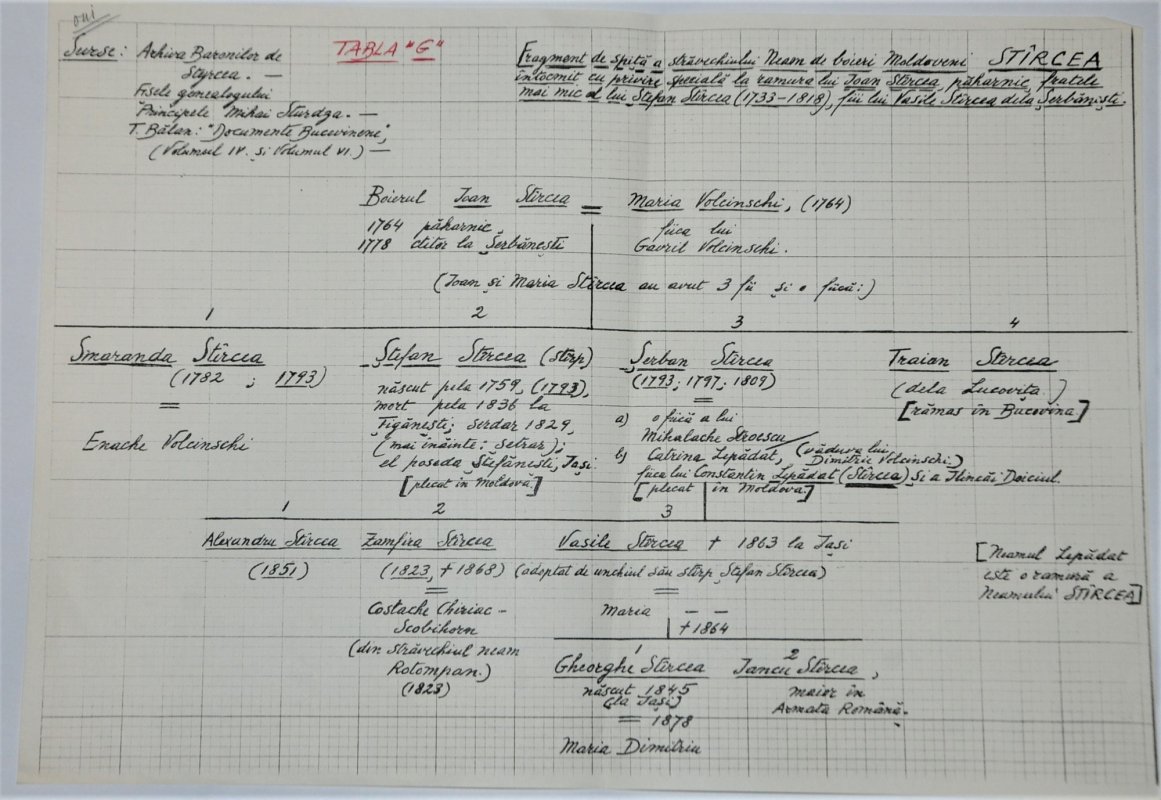 oui
Surse: Arhiva Baronilor de
Styrcea. —
Fisele genealogului
Principele Mihai Sturdza. —
T. Bălan: "Documente Bucovinene",
(Volumul IV. și Volumul VI.) —
TABLA "G"
Fragment de spiță a străvechiului Neam de boieri Moldoveni STÎRCEA
întocmit cu privire specială la ramura lui Ioan Stîrcea, păharnic, fratele
mai mic al lui Ștefan Stîrcea (1733-1818), fiii lui Vasile Stîrcea dela Șerbănești.
Boierul Ioan Stîrcea = Maria Volcinschi, (1764)
1764 păharnic,
1778 ctitor la Șerbănești
fiica lui
Gavril Volcinschi.
(Ioan și Maria Stîrcea au avut 3 fii și o fiică:)
1 2 3 4
Smaranda Stîrcea
(1782 ; 1793)
=
Enache Volcinschi
Ștefan Stîrcea (stirp)
născut pela 1759, (1793),
mort pela 1836 la
Țigănești; serdar 1829,
(mai înainte: setrar);
el poseda Ștefănești, Iași.
[plecat în Moldova]
Șerban Stîrcea
(1793; 1797; 1809)
=
a) o fiică a lui
Mihalache Stroescu
b) Catrina Lepădat, (văduva lui
Dimitrie Volcinschi.)
fiica lui Constantin Lepădat (Stîrcea) și a Ilincăi Doiciul.
[plecat în Moldova.]
Traian Stîrcea
(dela Lucovița.)
[rămas în Bucovina]
1 2 3
Alexandru Stîrcea
(1851)
Zamfira Stîrcea
(1823, + 1868)
=
Costache Chiriac -
Scobihorn
(din străvechiul neam
Rotompan.)
(1823)
Vasile Stîrcea + 1863 la Iași
(adoptat de unchiul său stirp, Ștefan Stîrcea)
=
Maria — —
+ 1864
[Neamul Lepădat
este o ramură a
Neamului STÎRCEA]
1 2
Gheorghe Stîrcea
născut 1845
(la Iași)
= 1878
Maria Dimitriu
Iancu Stîrcea,
maior în
Armata Română.